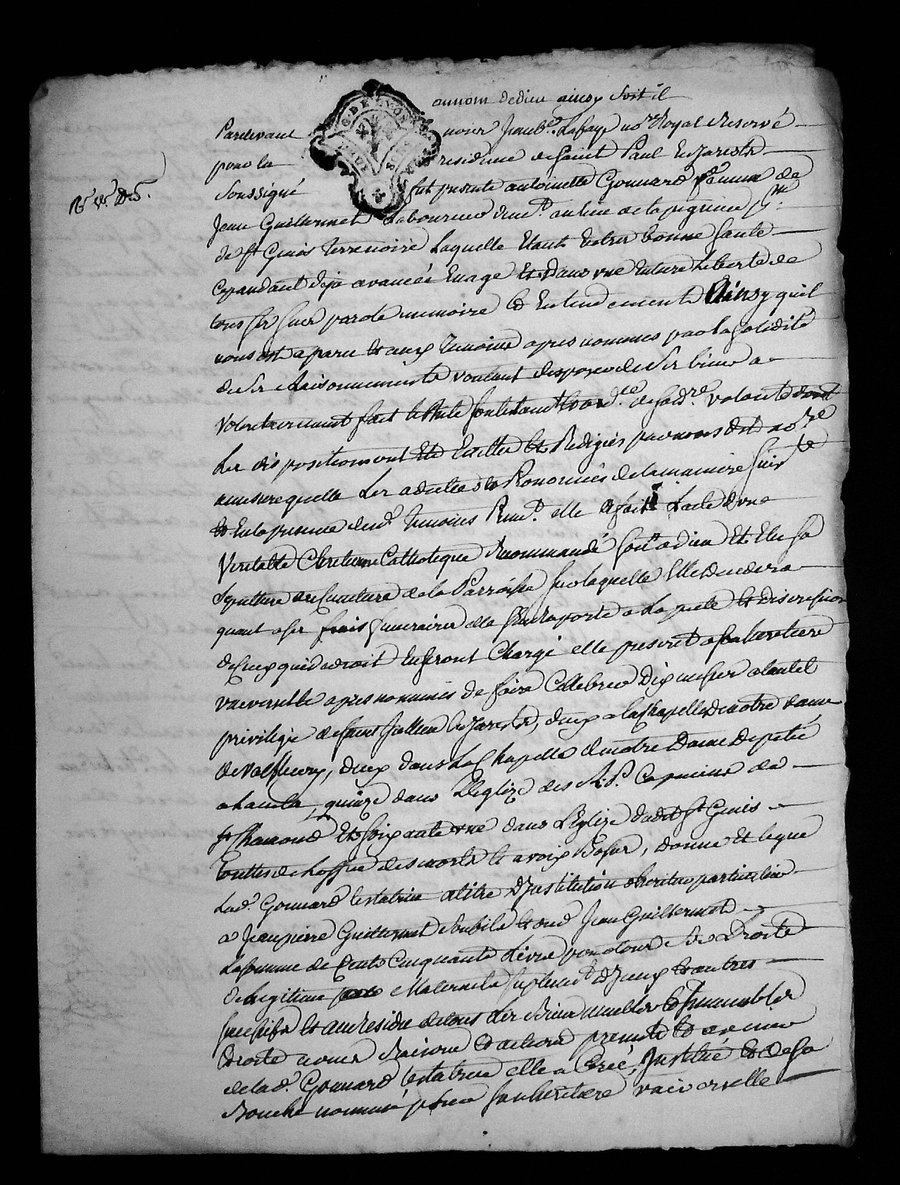 au nom de dieu ainsy soit il
Pardevant nous Jean Bte Lafay nore Royal Reservé
pour la Residence de Saint Paul En Jarests
Soussigné fut presente antoinette Gonnard femme de
Jean Guillermet Laboureur demt au lieu de la
de St Ginis terrenoire Laquelle Etant En tres bonne Santé
Cepandant deja avancée En age Et dans une Entiere Liberté de
tous ses sens parole memoire Et Entendement Ainsy quil
nous est aparu Et aux temoins apres nommés par la Solidité
de ses Raisonnements voulant disposer de ses biens a
volontairement fait
Les dispositions ont Eté Ecrittes Et Redigiés par nous dit nore
a mesure quelle Les a dictées Et Prononcées de la maniere suivte
Et En la presence desd temoins elle a fait Lacte dune
Veritable Chretienne Catholique Recommandé son a dieu Et Elu sa
Sepulture au Cimetiere de la Parroisse sur laquelle Elle decedera
quant a ses frais funeraires elle s'En raporte a La pieté Et discretion
de Ceux qui de droit En seront Chargé elle prescrit a son heretiere
universelle apres nommée de faire Cellebrer Dix messes a lautel
privilegié de Saint Julien En Jarests, deux a la Chapelle De notre dame
de Valfleury, deux dans La Chapelle de notre Dame de pitié
quinze dans LEglize des R.P. Capucins de
St Chamond Et soixante une dans LEglize dudt St Ginis
touttes de Loffice des morts a voix Basse, donne Et legue
Lad. Gonnard testatrice a titre D'institution hereditaire particuliere
a Jean pierre Guillermet son fils Et dud Jean Guillermet
La somme de Cents Cinquante Livres pour tous ses Droits
de Legitime Maternels suplement Diceux Et autres
Et au Residu de tous ses Biens meubles Et Immeubles
Droits noms Raisons Et actions presents Et avenir
de lad. Gonnard testatrice elle a Créé, Institué Et de sa
Bouche nommé pour son heretiere universelle